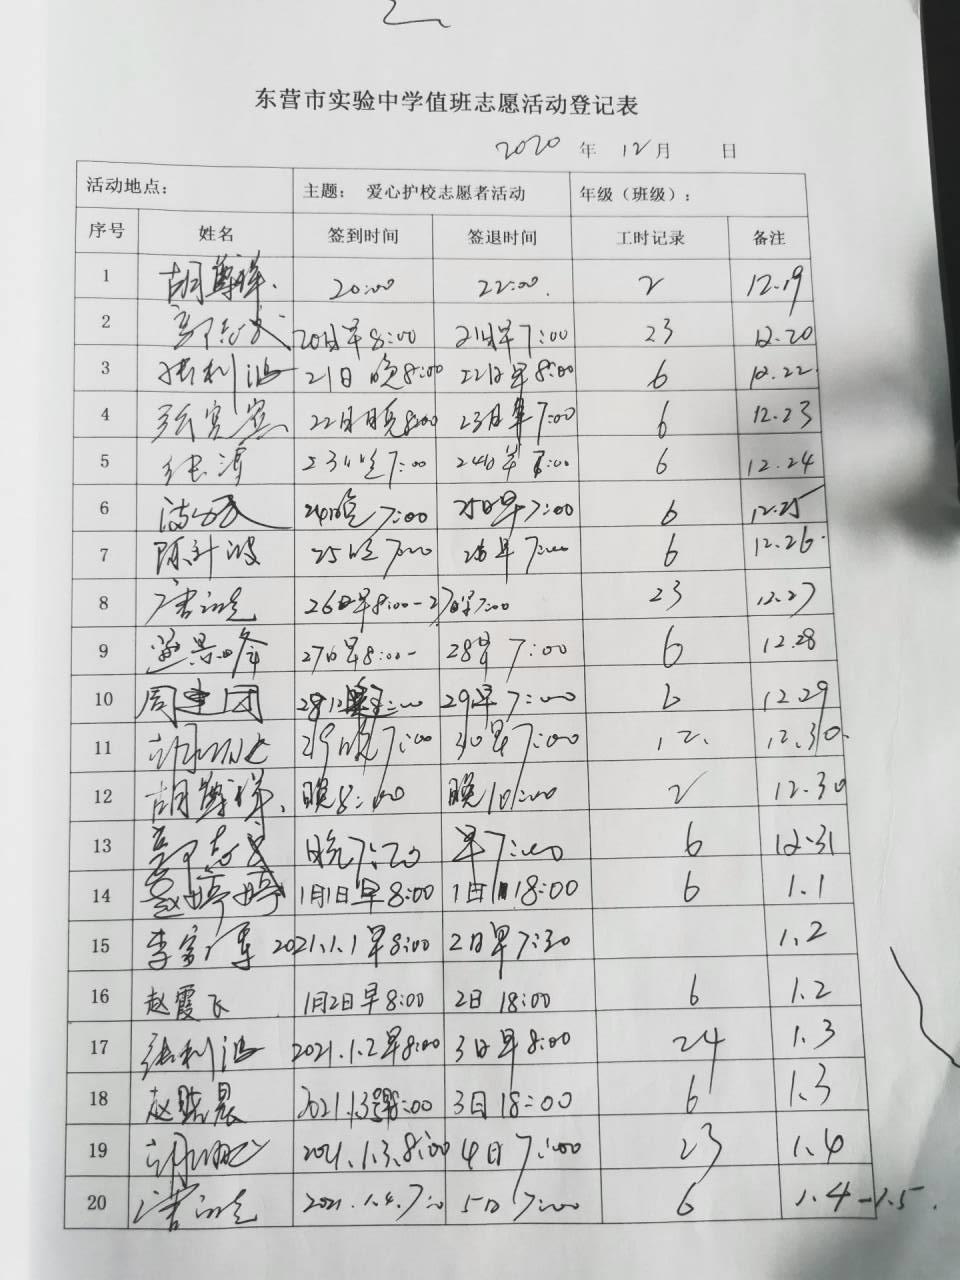 东营市实验中学值班志愿活动登记表
2020 年 12 月 日
活动地点： 主题： 爱心护校志愿者活动 年级（班级）：
序号 姓名 签到时间 签退时间 工时记录 备注
1 胡尊祥 20:00 22:00 2 12.19
2 20日早8:00 21日早7:00 23 12.20
3 张利 21日晚8:00 22日早8:00 6 12.22
4 22日晚8:00 23日早7:00 6 12.23
5 23晚7:00 24日早7:00 6 12.24
6 24日晚7:00 25日早7:00 6 12.25
7 陈 25晚7:00 26早7:00 6 12.26
8 唐 26日早8:00-27日早7:00 23 12.27
9 27日早8:00- 28日早7:00 6 12.28
10 周建国 29早7:00 6 12.29
11 29晚7:00 30早7:00 12 12.30
12 胡尊祥 晚8:00 晚10:00 2 12.30
13 晚7:20 早7:00 6 12.31
14 赵婷婷 1月1日早8:00 1日18:00 6 1.1
15 李 2021.1.1早8:00 2日早7:30 1.2
16 赵霞飞 1月2日早8:00 2日18:00 6 1.2
17 张利 2021.1.2早8:00 3日早8:00 24 1.3
18 赵晨 2021.1.3 8:00 3日18:00 6 1.3
19 2021.1.3.8:00 4日7:00 23 1.4
20 唐 2021.1.4.7:0 5日7:00 6 1.4-1.5.